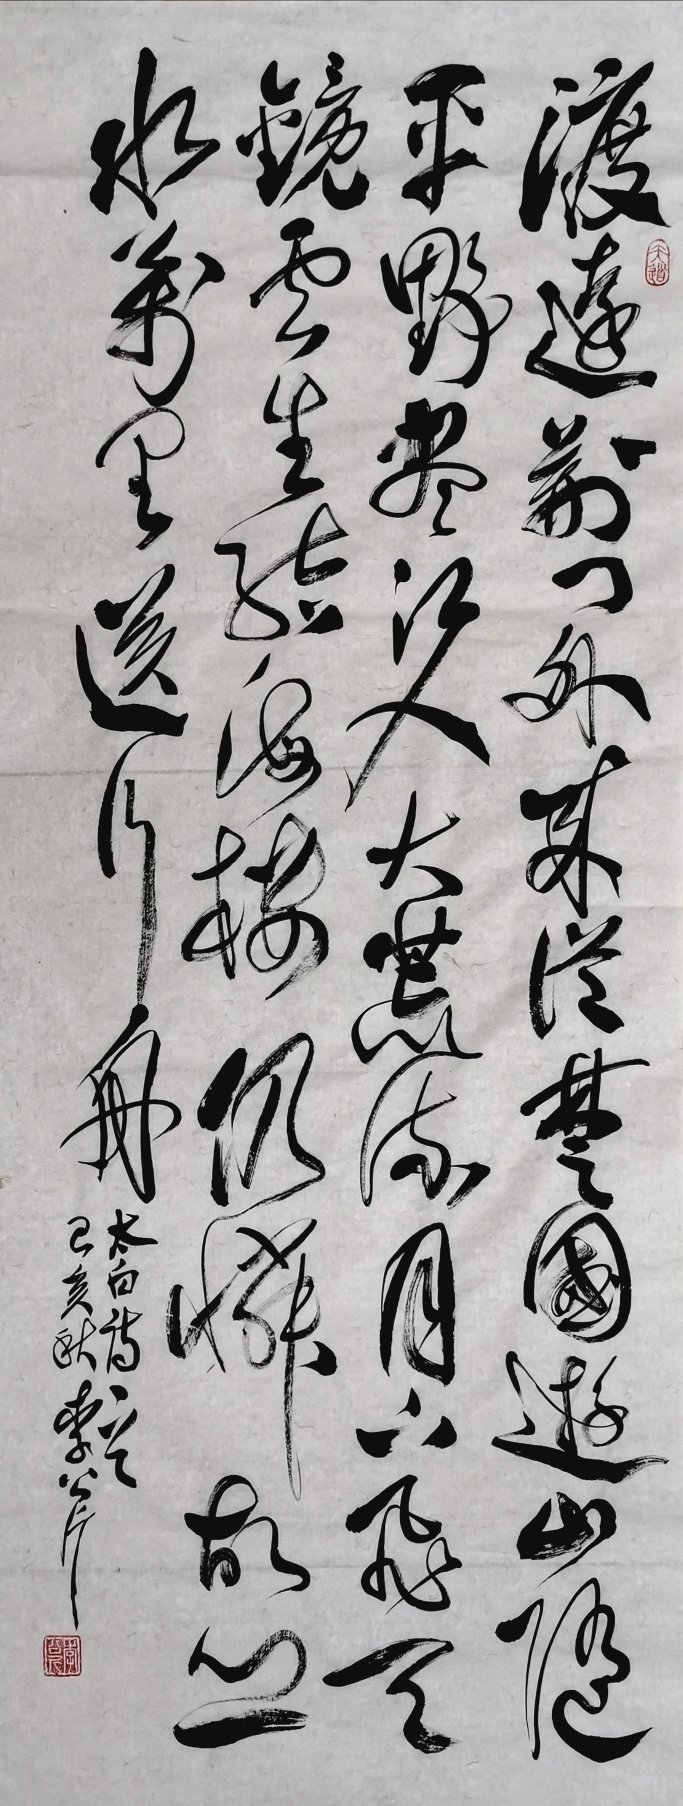 渡遠荊門外來從楚國遊山隨
平野盡江入大荒流月下飛天
鏡雲生結海樓仍憐故鄉
水萬里送行舟
太白詩一首
己亥秋李公
天道